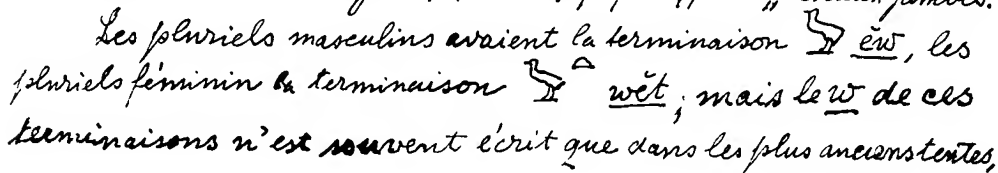 Les pluriels masculins avaient la terminaison 𓅱 ĕw, les
pluriels féminin la terminaison 𓅱𓏏 wĕt; mais le w de ces
terminaisons n'est souvent écrit que dans les plus anciens textes,